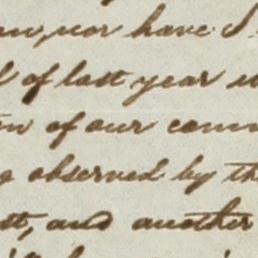 nor have I
of last year
of our com
observed by th
and another